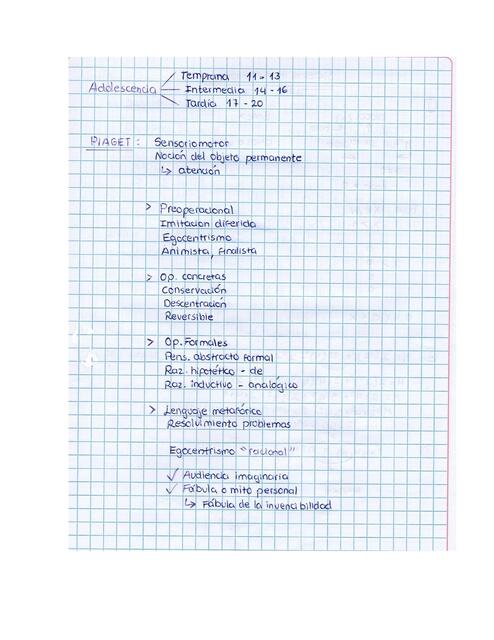 Temprana 11-13
Adolescencia Intermedia 14-16
Tardía 17-20
PIAGET: Sensoriomotor
Noción del objeto permanente
↳ atención
> Preoperacional
Imitacion diferida
Egocentrismo
Animista, finalista
> Op. concretas
Conservación
Descentración
Reversible
> Op. Formales
Pens. abstracto formal
Raz. hipotético - de
Raz. inductivo - analógico
> Lenguaje metafórico
Resolvimiento problemas
Egocentrismo "racional"
✓ Audiencia imaginaria
✓ Fábula o mito personal
↳ Fábula de la invencibilidad